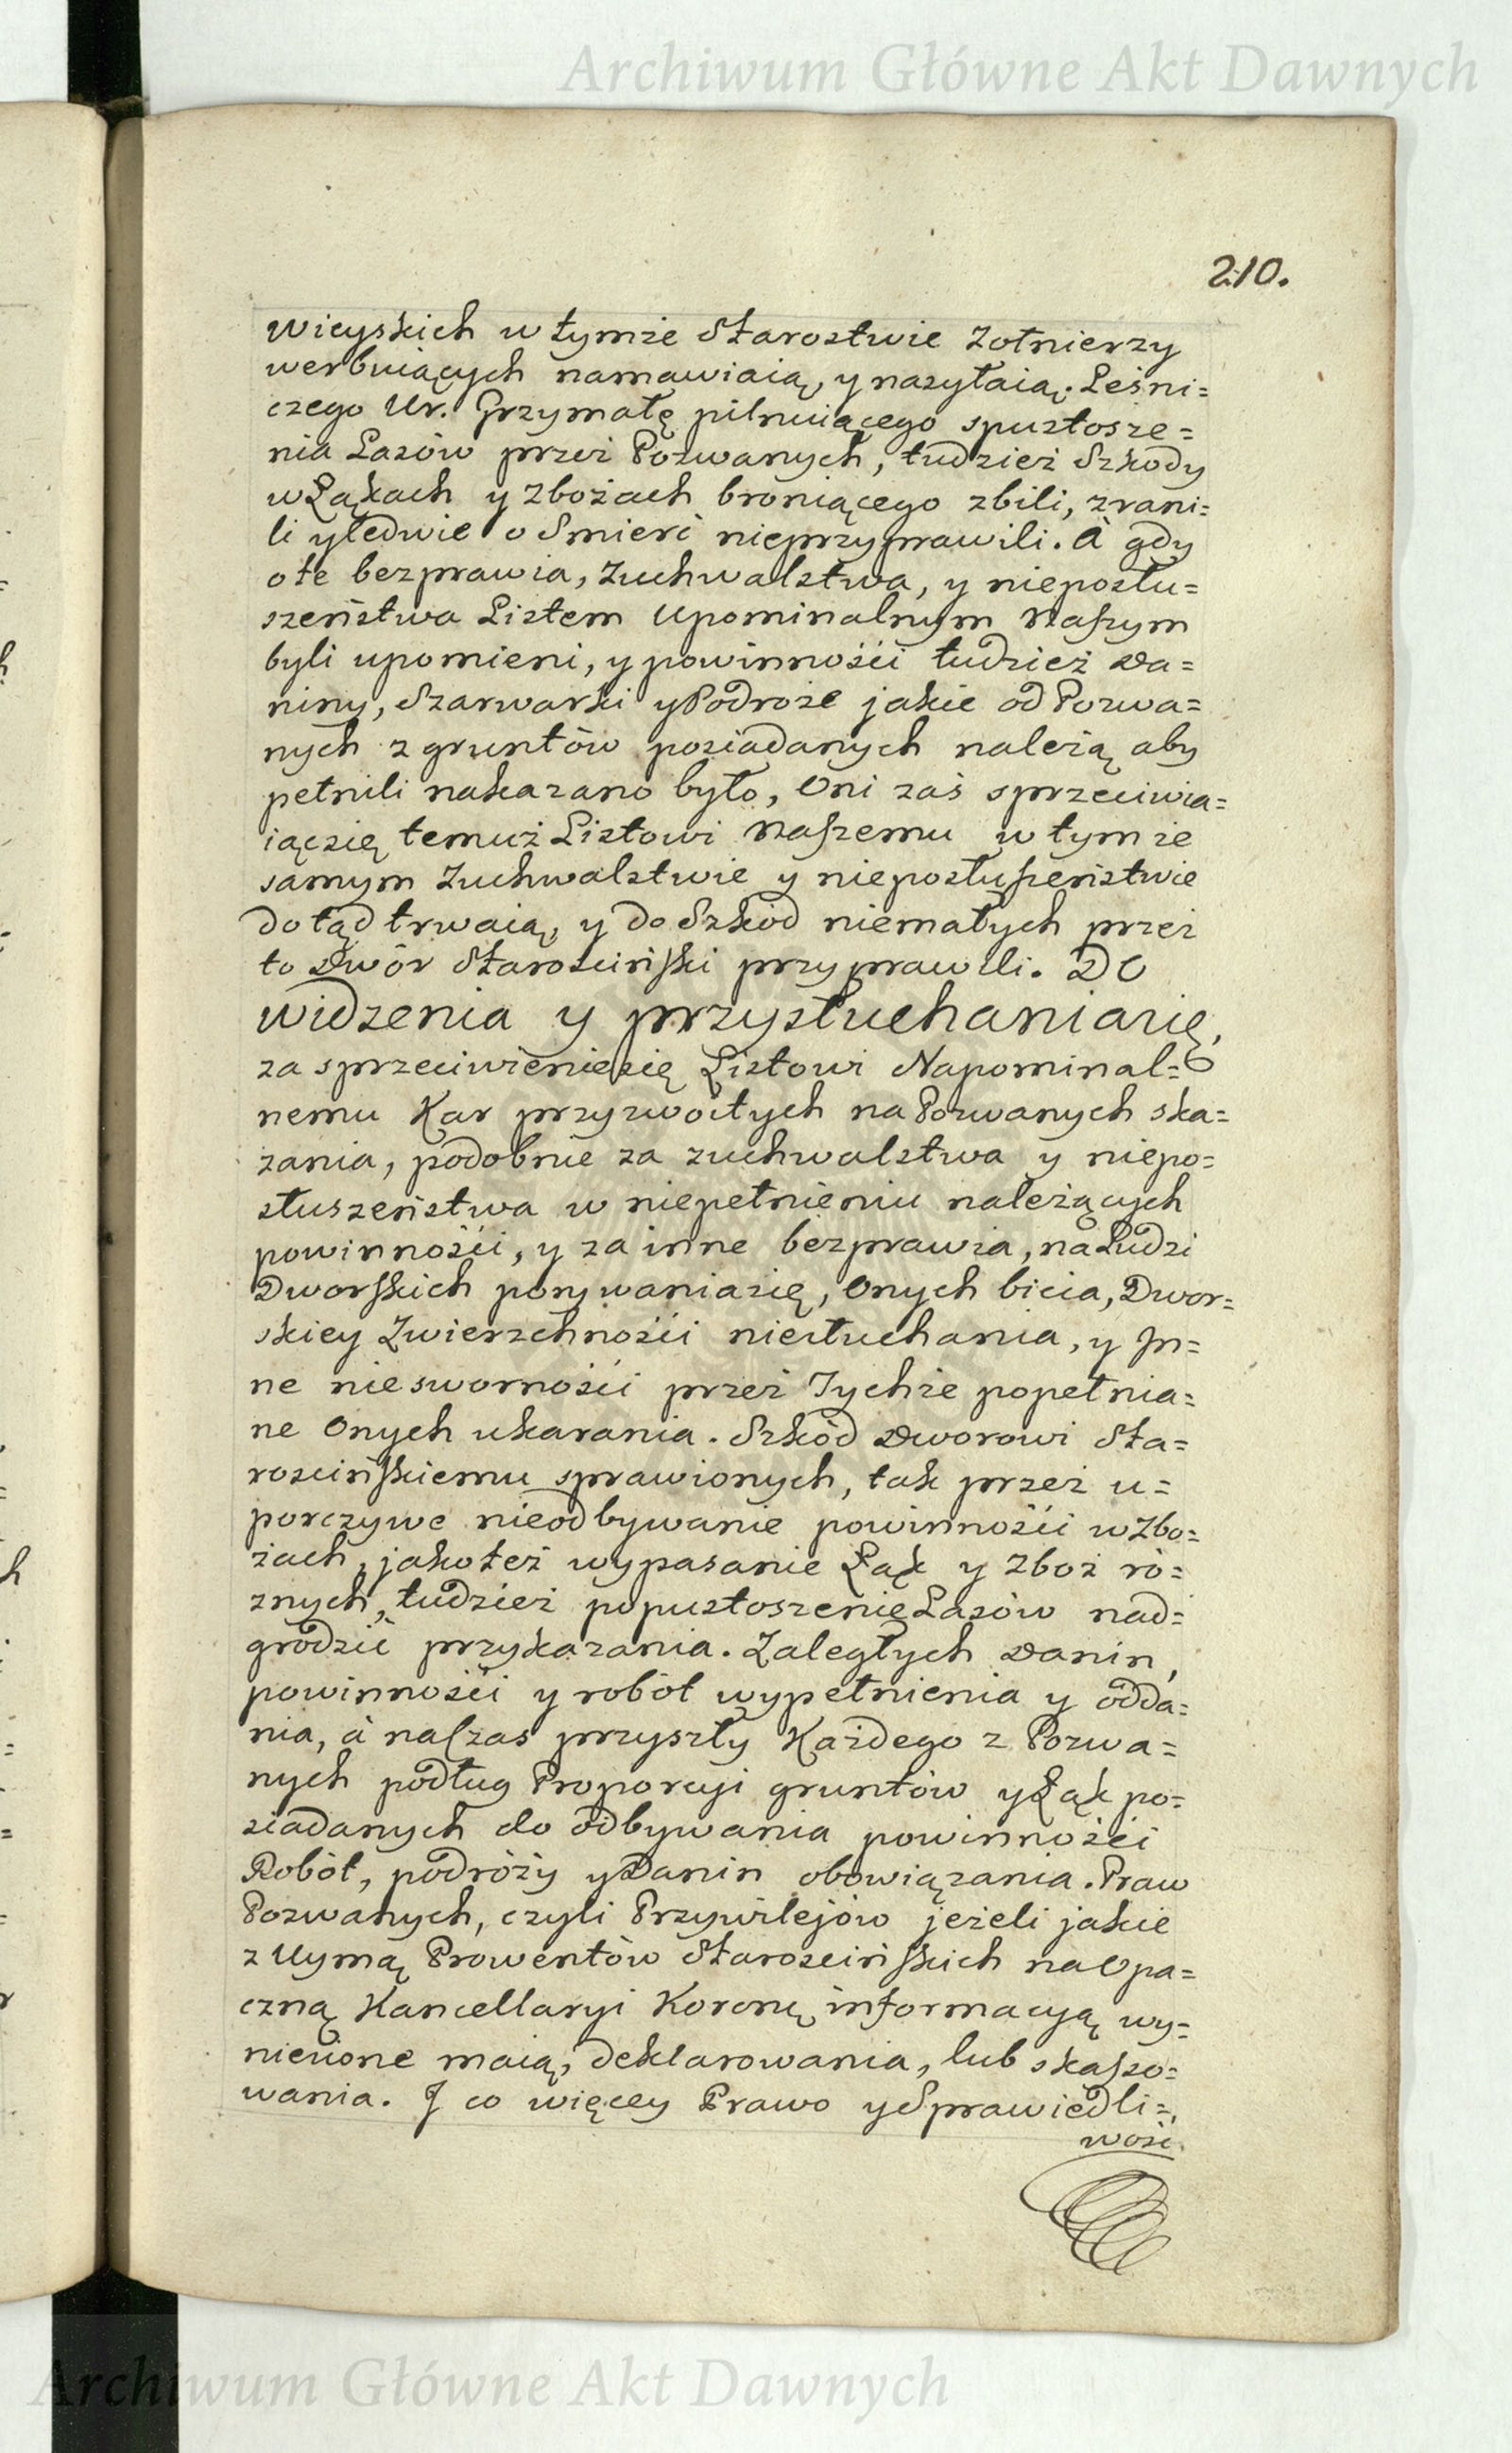 Archiwum Główne Akt Dawnych
210.
wieyskich w tymże Starostwie Zołnierzy
werbuiących namawiaią, y nasyłaią. Leśni=
czego Ur. Grzymałę pilnuiącego spustosze=
nia Lasów przez Pozwanych, tudzież Szkody
w Łąkach y Zbożach broniącego zbili, zrani=
li y ledwie o Smierć nieprzyprawili. A gdy
o te bezprawia, Zuchwalstwa, y nieposłu=
szeństwa Listem Upominalnym Naszym
byli upomieni, y powinności tudzież Da=
niny, Szarwarki y Podroże jakie od Pozwa=
nych z gruntów posiadanych należą aby
pełnili nakazano było, Oni zaś sprzeciwia=
iąc się temuż Listowi Naszemu w tymże
samym Zuchwalstwie y nieposłuszeństwie
dotąd trwaią, y do Szkód niemałych przez
to Dwór Starosciński przyprawili. DO
widzenia y przysłuchania się,
za sprzeciwienie się Listowi Napominal=
nemu Kar przyzwoitych na Pozwanych ska=
zania, podobnie za zuchwalstwa y niepo=
słuszeństwa w niepełnieniu należących
powinności, y za inne bezprawia, na Ludzi
Dworskich porywania się, Onych bicia, Dwor=
skiey Zwierzchności niesłuchania, y In=
ne niesworności przez Tychże popełnia=
ne Onych ukarania. Szkód Dworowi Sta=
rościńskiemu sprawionych, tak przez u=
porczywe nieodbywanie powinności w Zbo=
żach, jako też wypasanie Łąk y Zboż ró=
znych, tudzież popustoszenie Lasów nad=
grodzić przykazania. Zaległych Danin,
powinności y robót wypełnienia y odda=
nia, à na czas przyszły Każdego z Pozwa=
nych podług Proporcyi gruntów y Łąk po=
siadanych do odbywania powinności
Robót, podróży y Danin obowiązania. Praw
Pozwanych, czyli Przywilejów jeżeli jakie
z Uymą Prowentów Starościńskich na Opa=
czną Kancellaryi Koronę informacyą wy=
nienione maią, deklarowania, lub skasso=
wania. I co więcey Prawo y Sprawiedli=
wość.
Archiwum Główne Akt Dawnych